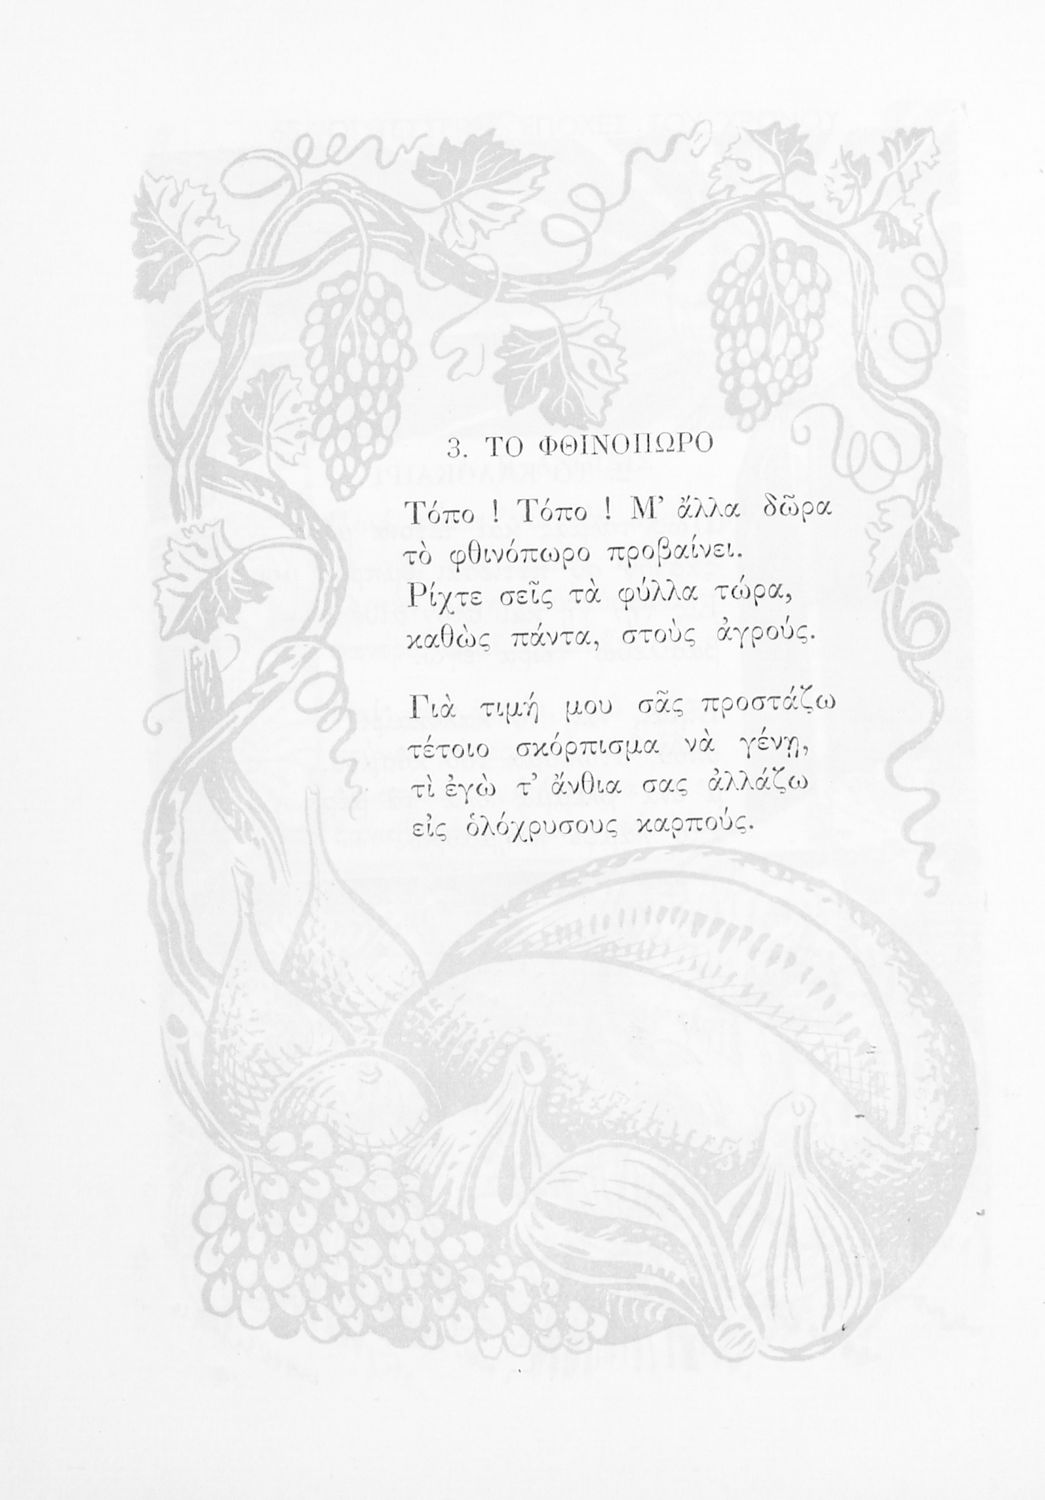 3. ΤΟ ΦΘΙΝΟΠΩΡΟ
Τόπο ! Τόπο ! Μ' ἄλλα δῶρα
τὸ φθινόπωρο προβαίνει.
Ρίχτε σεῖς τὰ φύλλα τώρα,
καθὼς πάντα, στοὺς ἀγρούς.
Γιὰ τιμή μου σᾶς προστάζω
τέτοιο σκόρπισμα νὰ γένῃ,
τὶ ἐγὼ τ' ἄνθια σας ἀλλάζω
εἰς ὁλόχρυσους καρπούς.